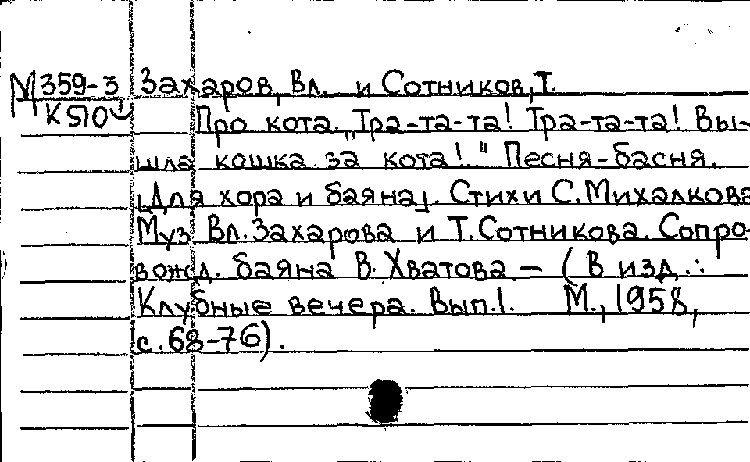 М359-3 Захаров, Вл. и Сотников, Т.
К510 Про кота. „Тра-та-та! Тра-та-та! Вы-
шла кошка за кота!." Песня-басня.
[Для хора и баяна]. Стихи С. Михалкова
Муз Вл. Захарова и Т. Сотникова. Сопро-
вожд. баяна В. Хватова — ( В изд.:
Клубные вечера. Вып.1. М., 1958,
с. 68-76).